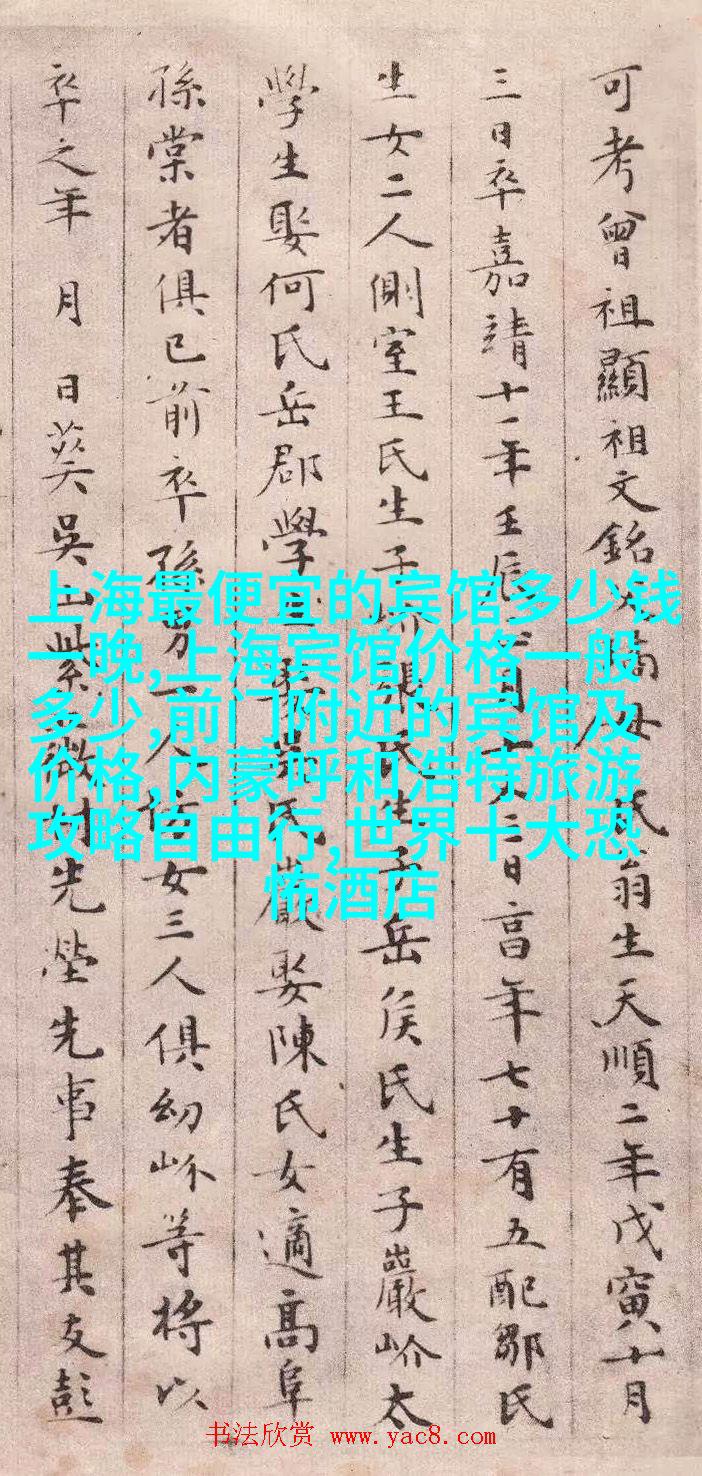 可考曾祖顯祖文銘
氏翁生天順二年戊寅十月
三日卒嘉靖十一年壬辰
二日高年七十有五配鄒氏
生女二人側室王氏生子
氏生子岳侯氏生子巖岕太
學生娶何氏岳郡學
巖娶陳氏女適高阜
孫棠者俱已前卒孫男一人
女三人俱幼岕等將以
卒之年 月 日葬吳山紫
先塋先事奉其友彭
上海最便宜的宾馆多少钱
一晚,上海宾馆价格一般
多少,前门附近的宾馆及
价格,内蒙呼和浩特旅游
攻略自由行,世界十大恐
怖酒店
书法欣赏 www.yac8.com